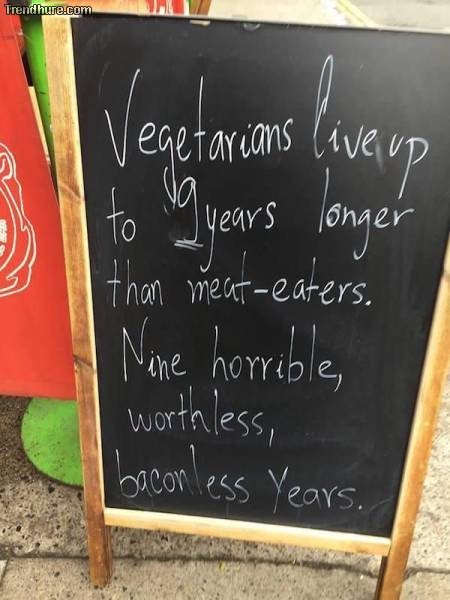 Trendhure.com
Vegetarians live up
to 9 years longer
than meat-eaters.
Nine horrible,
worthless,
baconless years.